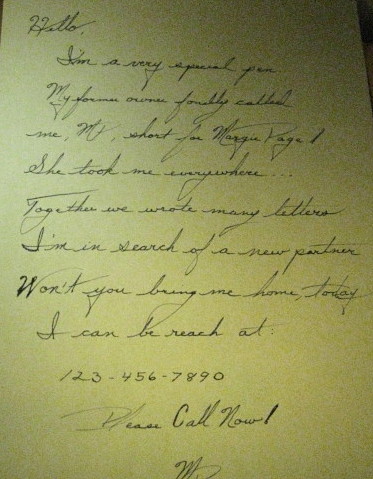 Hello,
I'm a very special pen
My former owner fondly called
me, MP, short for Margie Page!
She took me everywhere...
Together we wrote many letters
I'm in search of a new partner
Won't you bring me home, today
I can be reach at:
123-456-7890
Please Call Now!
MP